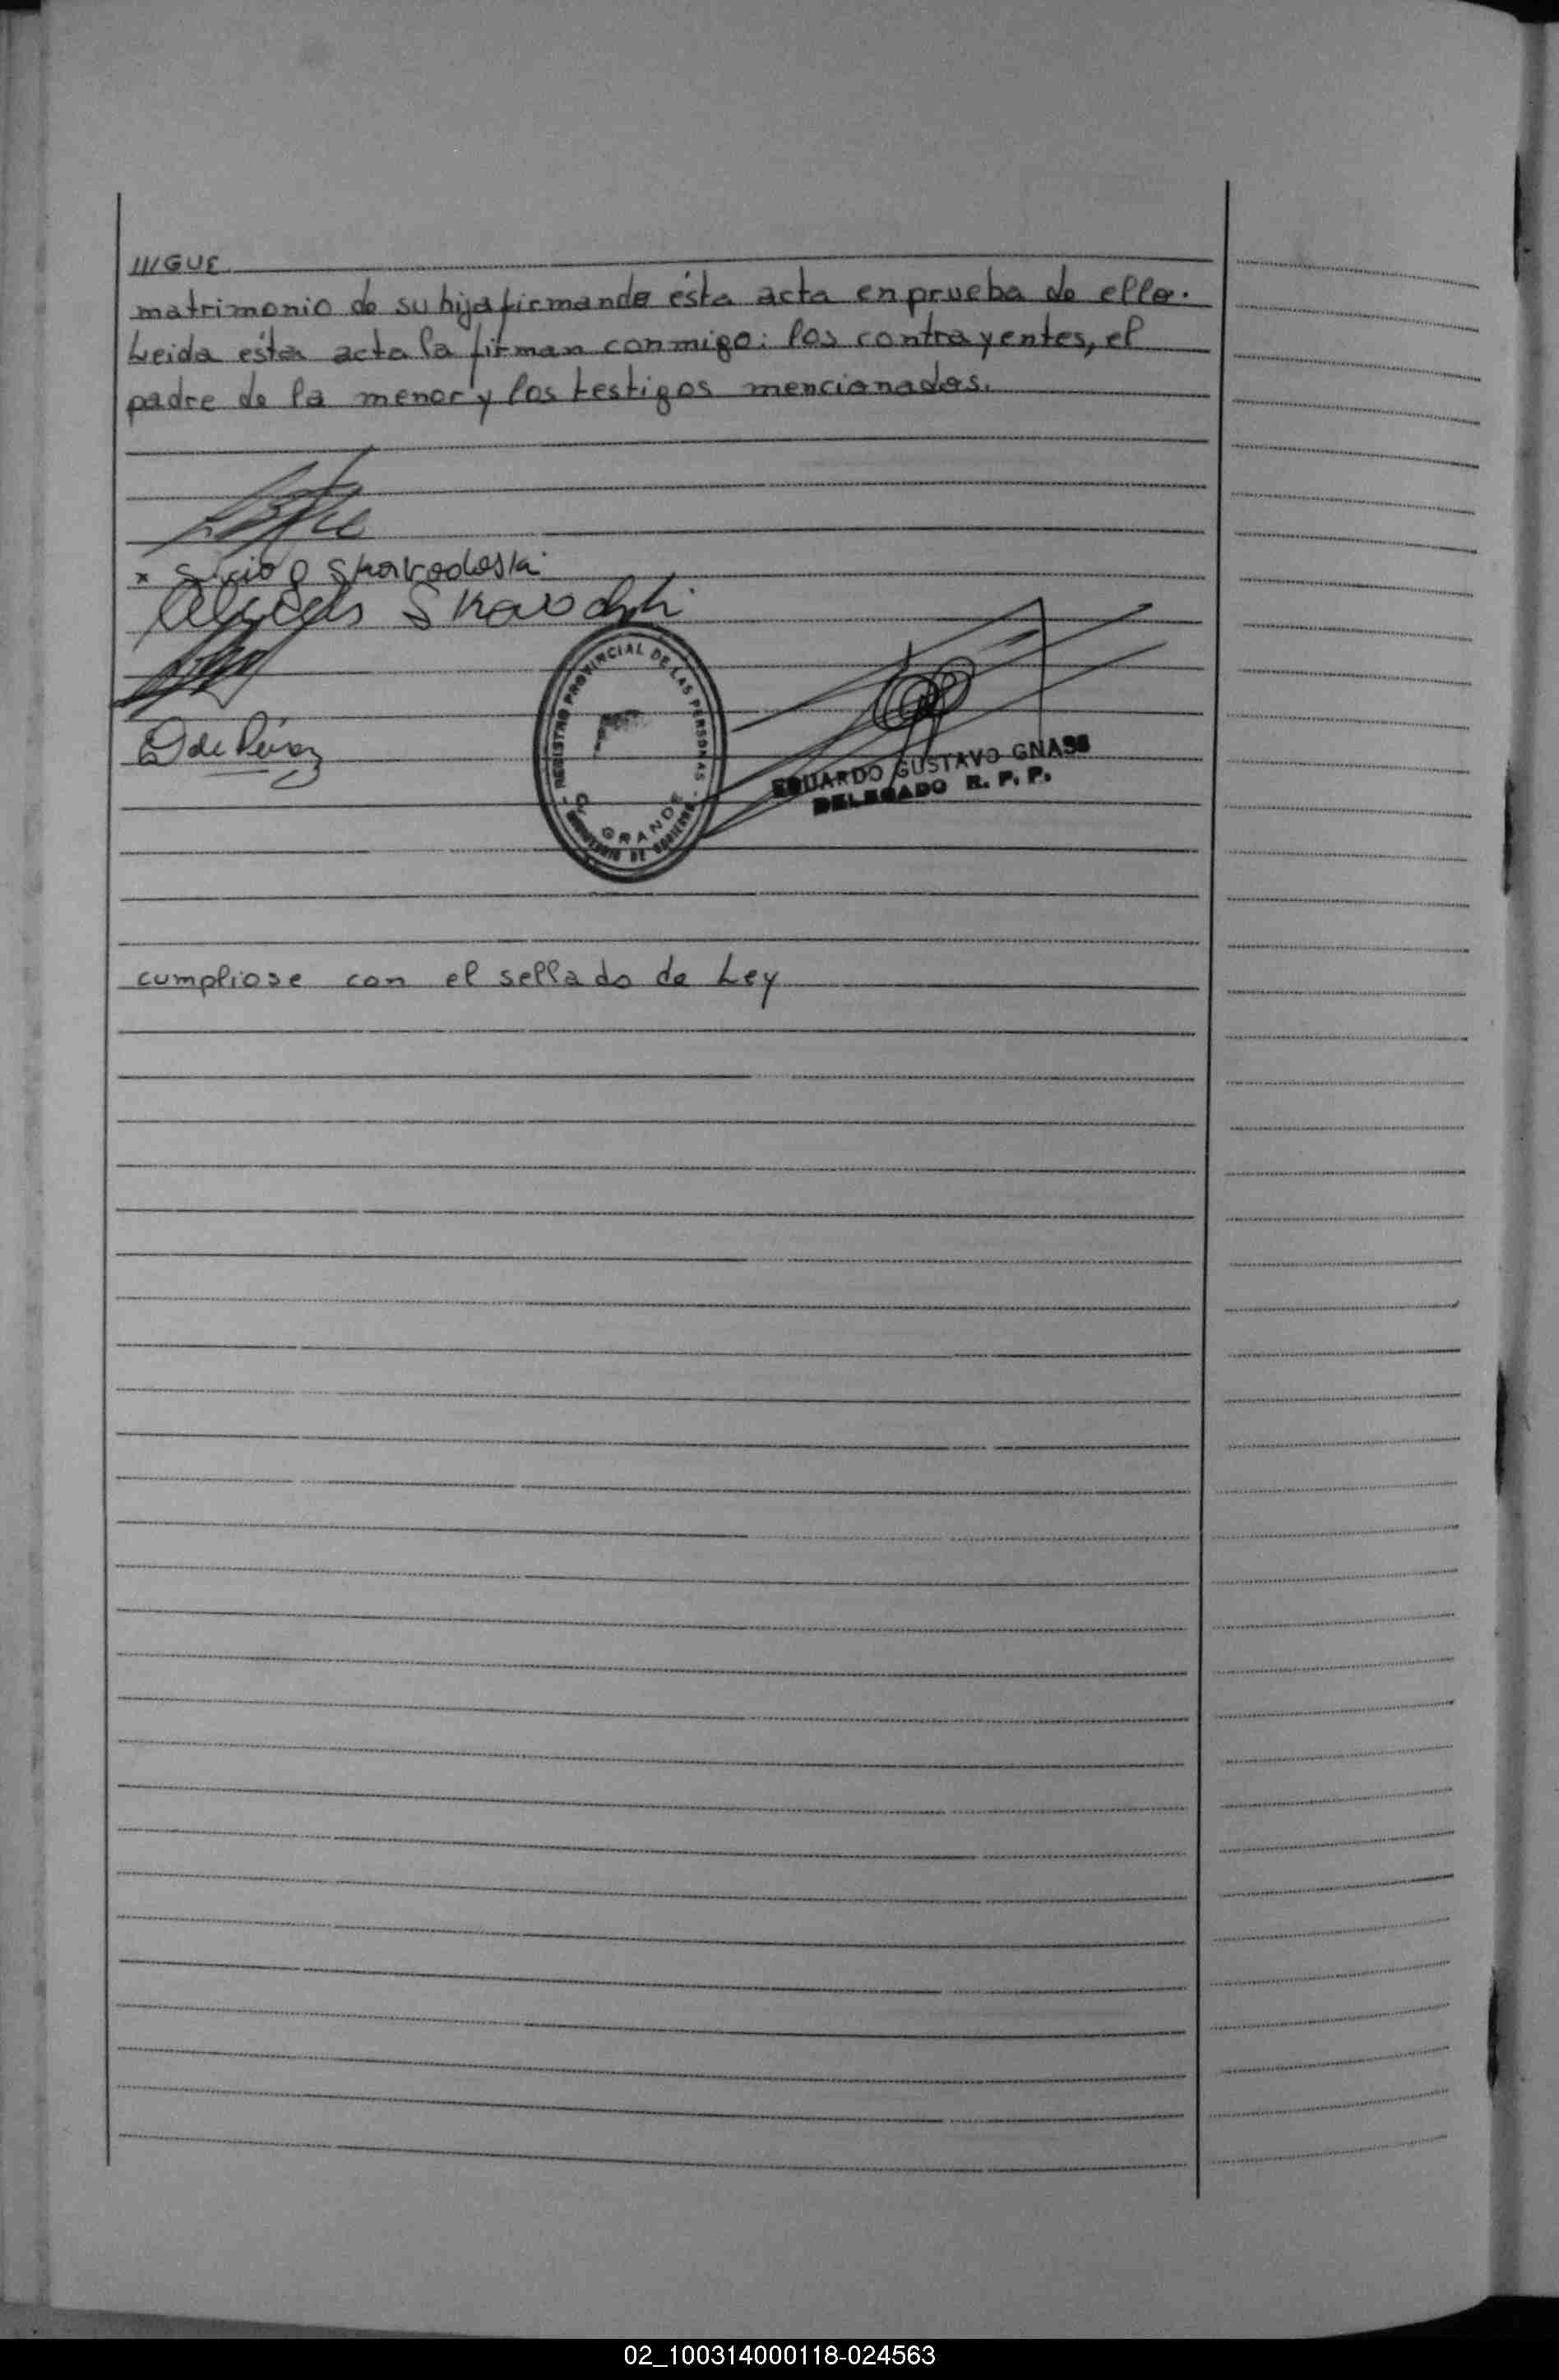 ///GUE
matrimonio de su hija firmando ésta acta en prueba de ello.
Leida ésta acta la firman conmigo: los contrayentes, el
padre de la menor y los testigos mencionados.
x
D de Pérez
REGISTRO PROVINCIAL DE LAS PERSONAS
GRANDE
EDUARDO GUSTAVO GNASS
DELEGADO R. P. P.
cumpliose con el sellado de Ley
02_100314000118-024563